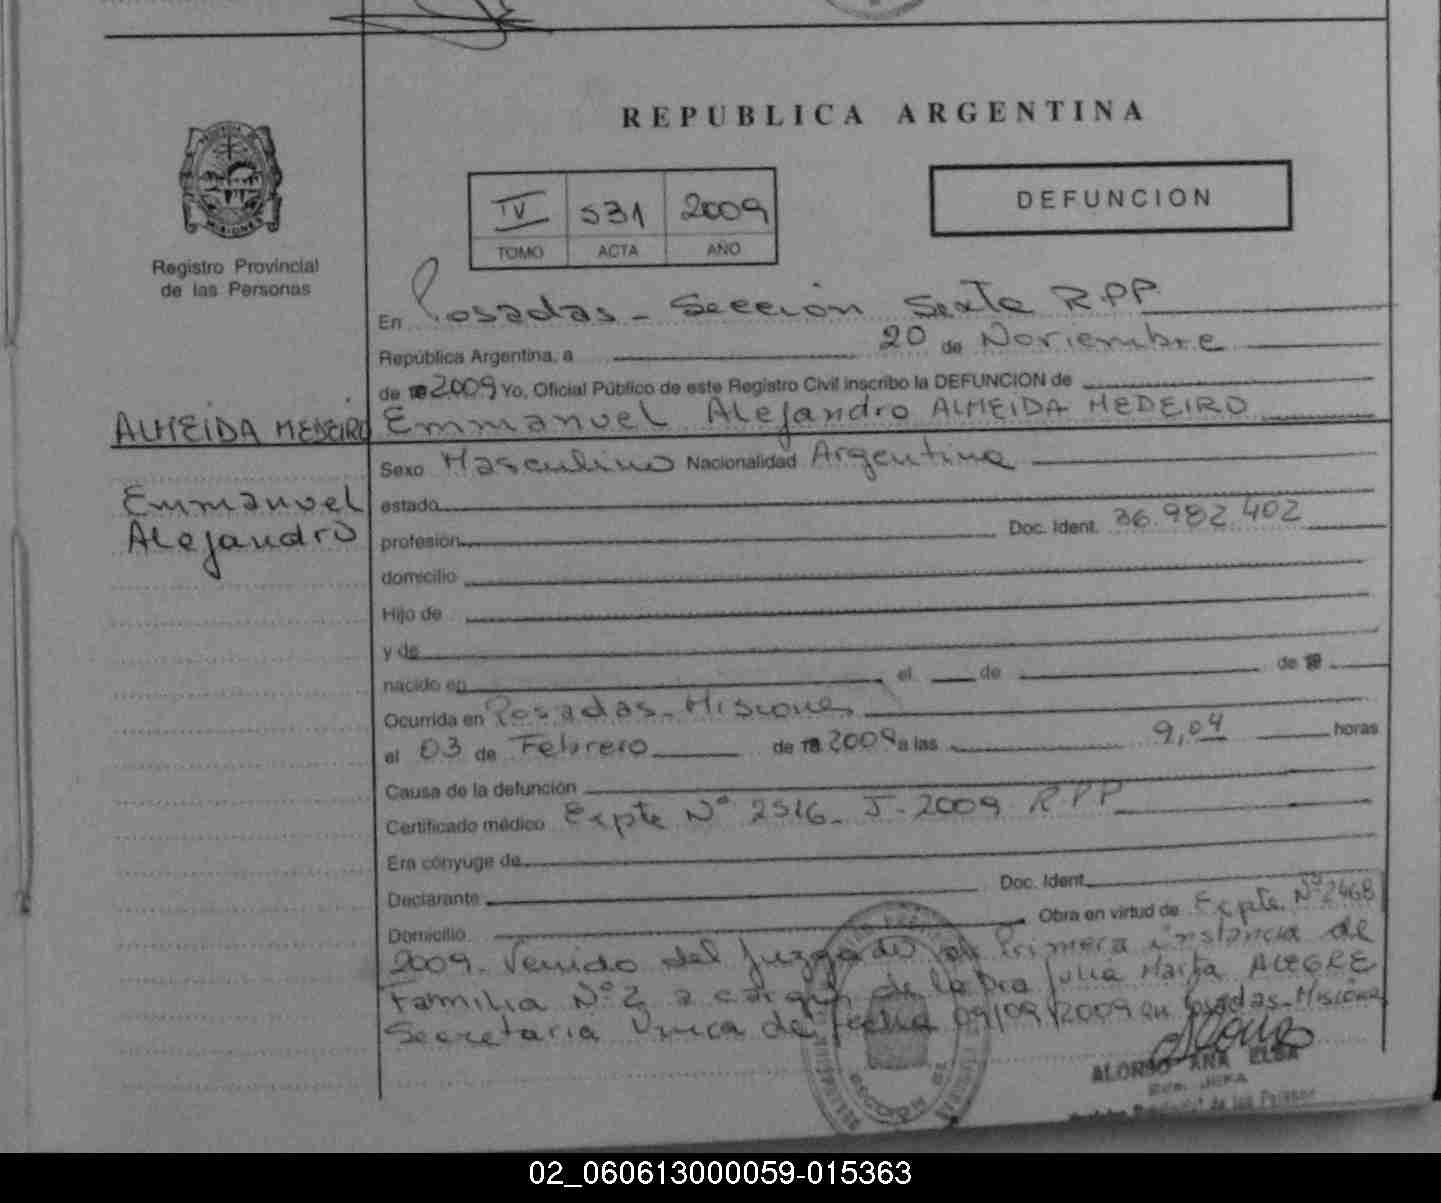 REPUBLICA ARGENTINA
MISIONES
Registro Provincial
de las Personas
IV 531 2009
TOMO ACTA AÑO
DEFUNCION
En Posadas - Sección Sexta R.P.P
República Argentina, a 20 de Noviembre
de 19 2009 Yo, Oficial Público de este Registro Civil inscribo la DEFUNCION de
ALMEIDA MEDEIRO
Emmanuel Alejandro ALMEIDA MEDEIRO
Sexo Masculino Nacionalidad Argentina
Emmanuel
Alejandro
estado
profesión Doc. Ident. 36.982.402
domicilio
Hijo de
y de
nacido en el de de 19
Ocurrida en Posadas - Misiones
el 03 de Febrero de 19 2009 a las 9,04 horas
Causa de la defunción
Certificado médico Expte Nº 2516 - J - 2009 R.P.P
Era cónyuge de
Declarante Doc. Ident.
Domicilio Obra en virtud de Expte. Nº 2468
2009 - Venido del Juzgado de Primera instancia de
Familia Nº 2 a cargo de la Dra Julia Marta ALEGRE
Secretaria Unica de fecha 09/09/2009 en Posadas - Misiones
ALONSO ANA ELSA
JEFA
de las Personas
02_060613000059-015363